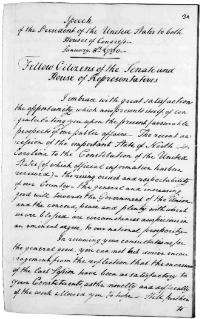 Speech
of the President of the United States to both
Houses of Congress
January 8th 1790.
Fellow Citizens of the Senate and
House of Representatives
I embrace with great satisfaction
the opportunity, which now presents itself, of con-
gratulating you upon the present favourable
prospects of our public affairs. The recent ac-
cession of the important State of North
Carolina to the Constitution of the United
States (of which official information has been
received) the rising credit and respectability
of our Country the general and increasing
good will towards the Government of the Union
and the concord, peace and plenty with which
we are blessed are circumstances auspicious in
an eminent degree, to our national prosperity.
In resuming your consultations for
the general good, you can not but derive encou-
ragement from the reflection that the measures
of the last Session have been as satisfactory to
your Constituents as the novelty and difficulty
of the work allowed you to hope. Still further